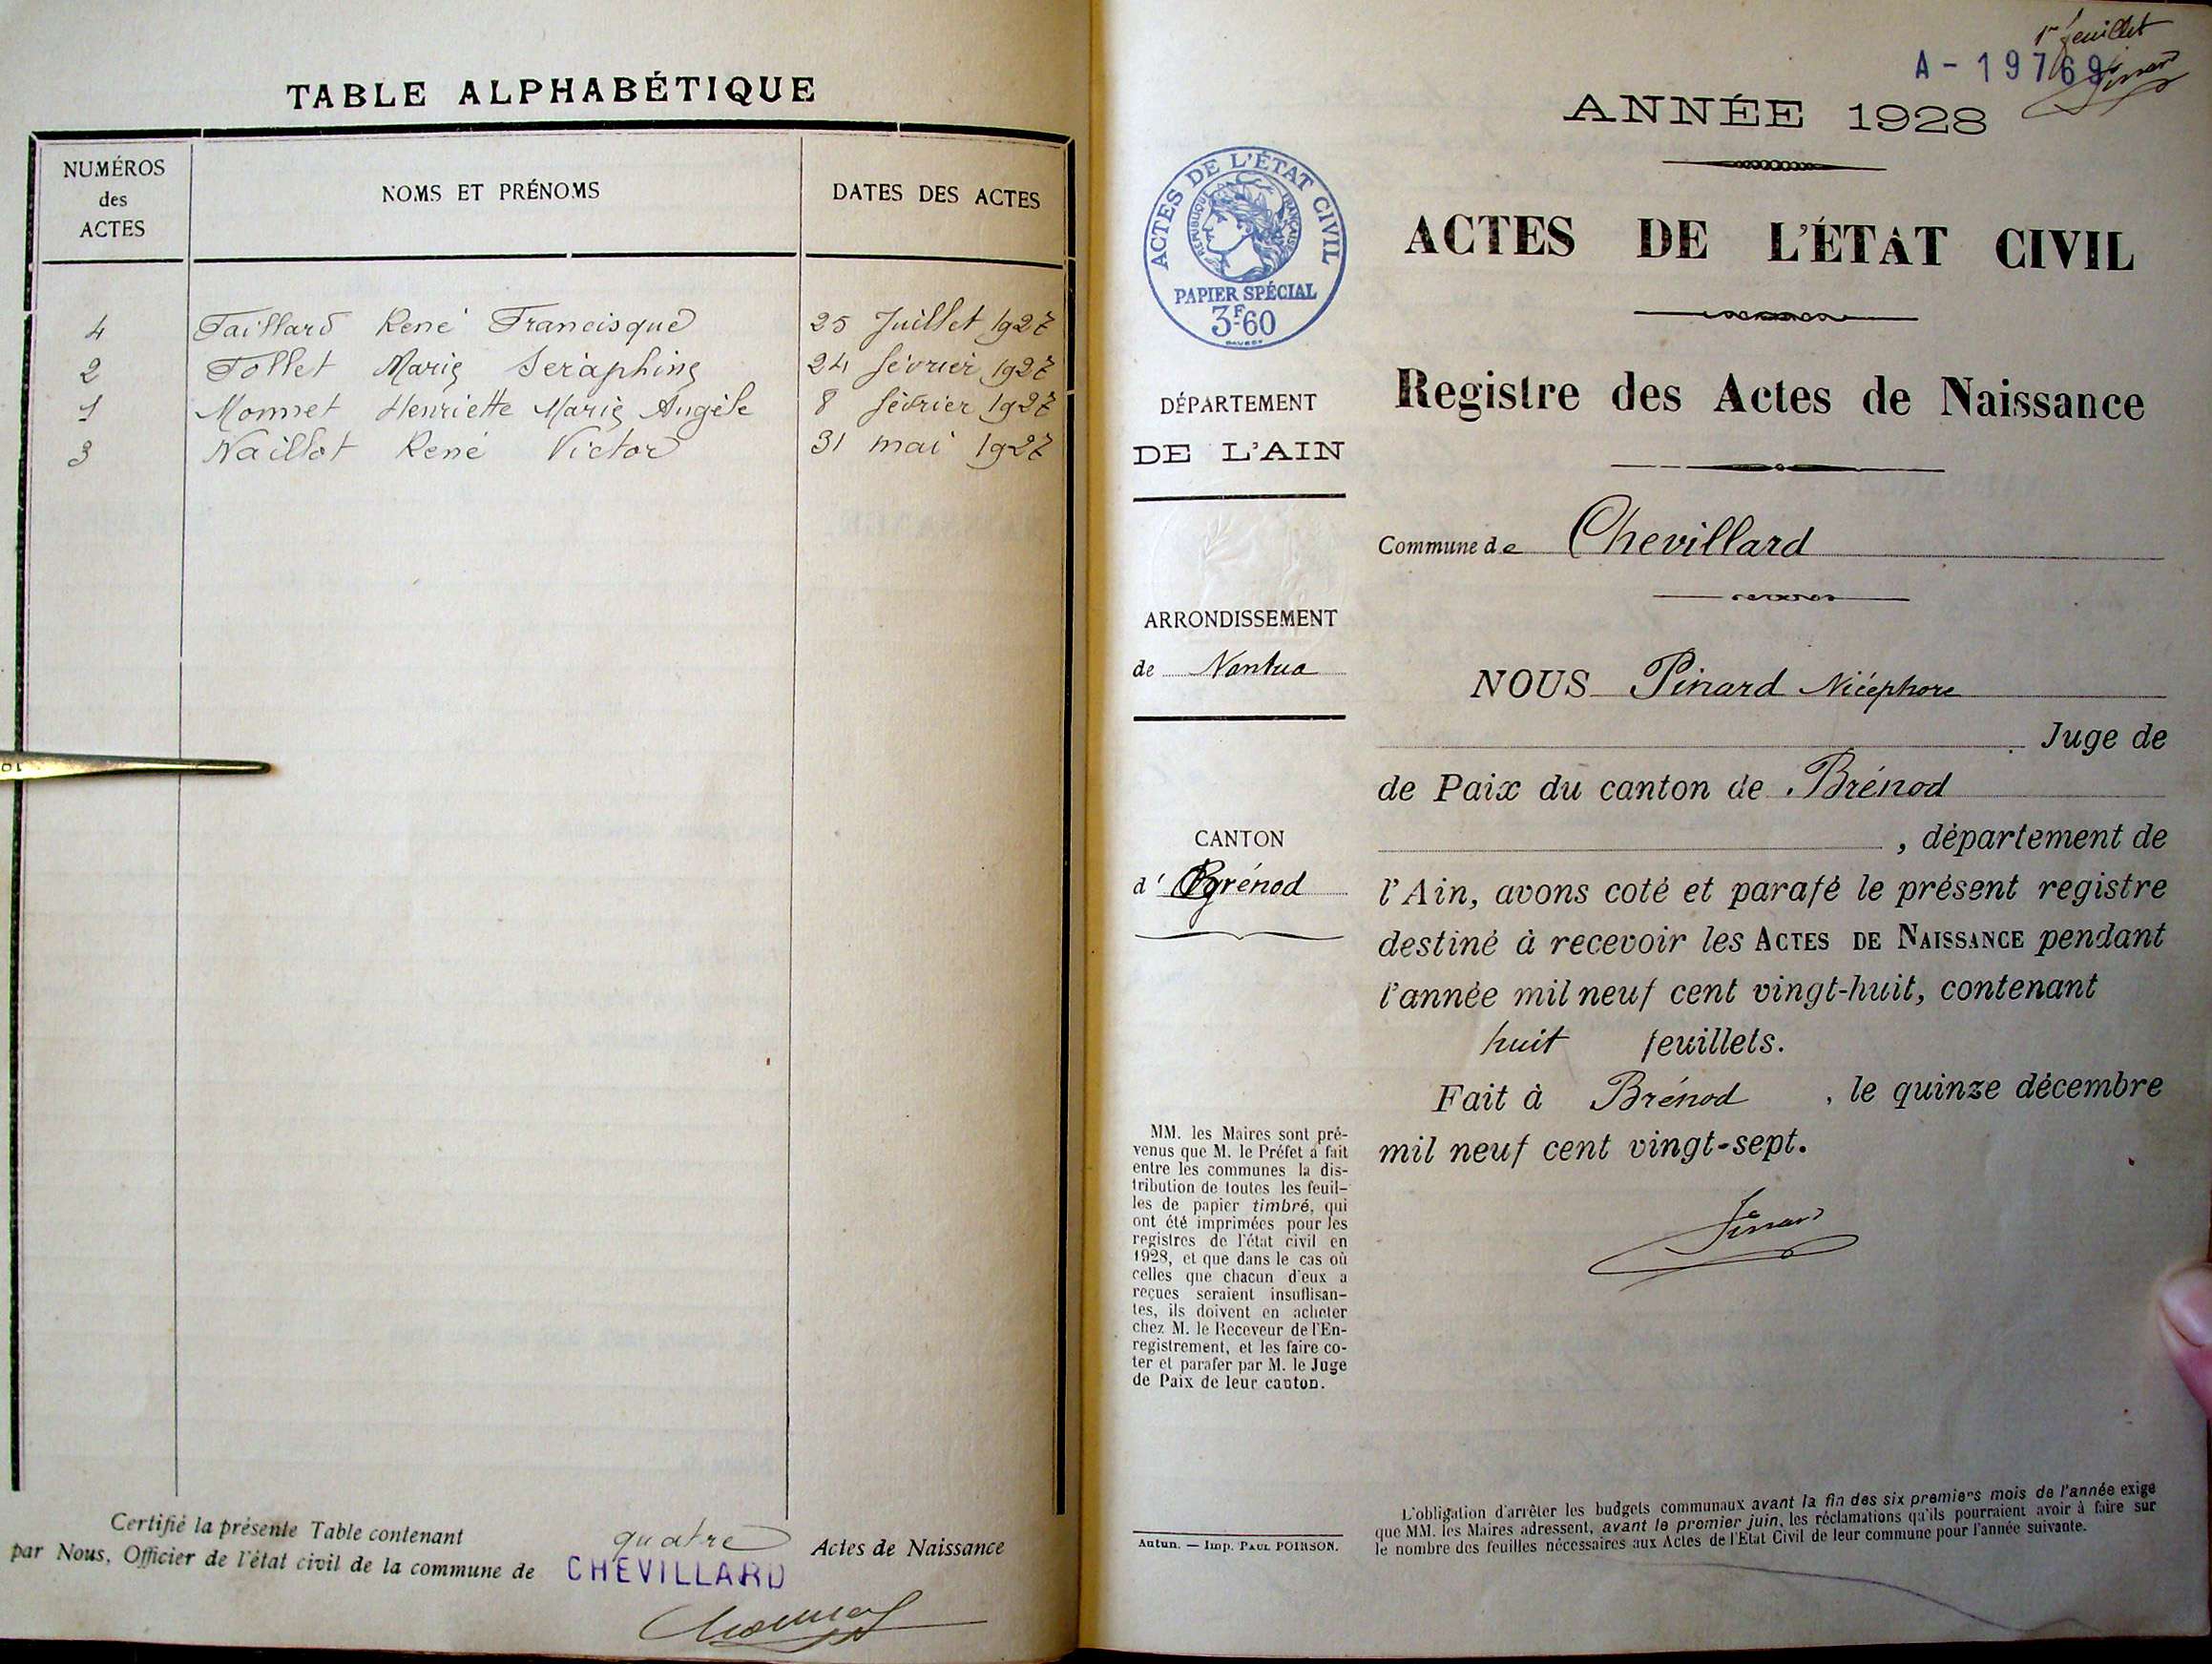 TABLE ALPHABÉTIQUE
NUMÉROS
des
ACTES
NOMS ET PRÉNOMS
DATES DES ACTES
4 Taillard René Francisque 25 Juillet 1927
2 Tollet Marie Séraphine 24 février 1927
1 Monnet Henriette Marie Angèle 8 février 1927
3 Naillot René Victor 31 mai 1927
Certifié la présente Table contenant quatre Actes de Naissance
par Nous, Officier de l'état civil de la commune de CHEVILLARD
1er feuillet
A-19769
Pinard
ANNÉE 1928
ACTES DE L'ÉTAT CIVIL
RÉPUBLIQUE FRANÇAISE
PAPIER SPÉCIAL
3F60
ACTES DE L'ÉTAT CIVIL
Registre des Actes de Naissance
DÉPARTEMENT
DE L'AIN
Commune de Chevillard
ARRONDISSEMENT
de Nantua
CANTON
d' Brénod
NOUS Pinard Nicéphore
Juge de
de Paix du canton de Brénod
, département de
l'Ain, avons coté et parafé le présent registre
destiné à recevoir les ACTES DE NAISSANCE pendant
l'année mil neuf cent vingt-huit, contenant
huit feuillets.
Fait à Brénod , le quinze décembre
mil neuf cent vingt-sept.
Pinard
MM. les Maires sont pré-
venus que M. le Préfet a fait
entre les communes la dis-
tribution de toutes les feuil-
les de papier timbré, qui
ont été imprimées pour les
registres de l'état civil en
1928, et que dans le cas où
celles que chacun d'eux a
reçues seraient insuffisan-
tes, ils doivent en acheter
chez M. le Receveur de l'En-
registrement, et les faire co-
ter et parafer par M. le Juge
de Paix de leur canton.
Autun. — Imp. PAUL POIRSON.
L'obligation d'arrêter les budgets communaux avant la fin des six premiers mois de l'année exige
que MM. les Maires adressent, avant le premier juin, les réclamations qu'ils pourraient avoir à faire sur
le nombre des feuilles nécessaires aux Actes de l'État Civil de leur commune pour l'année suivante.